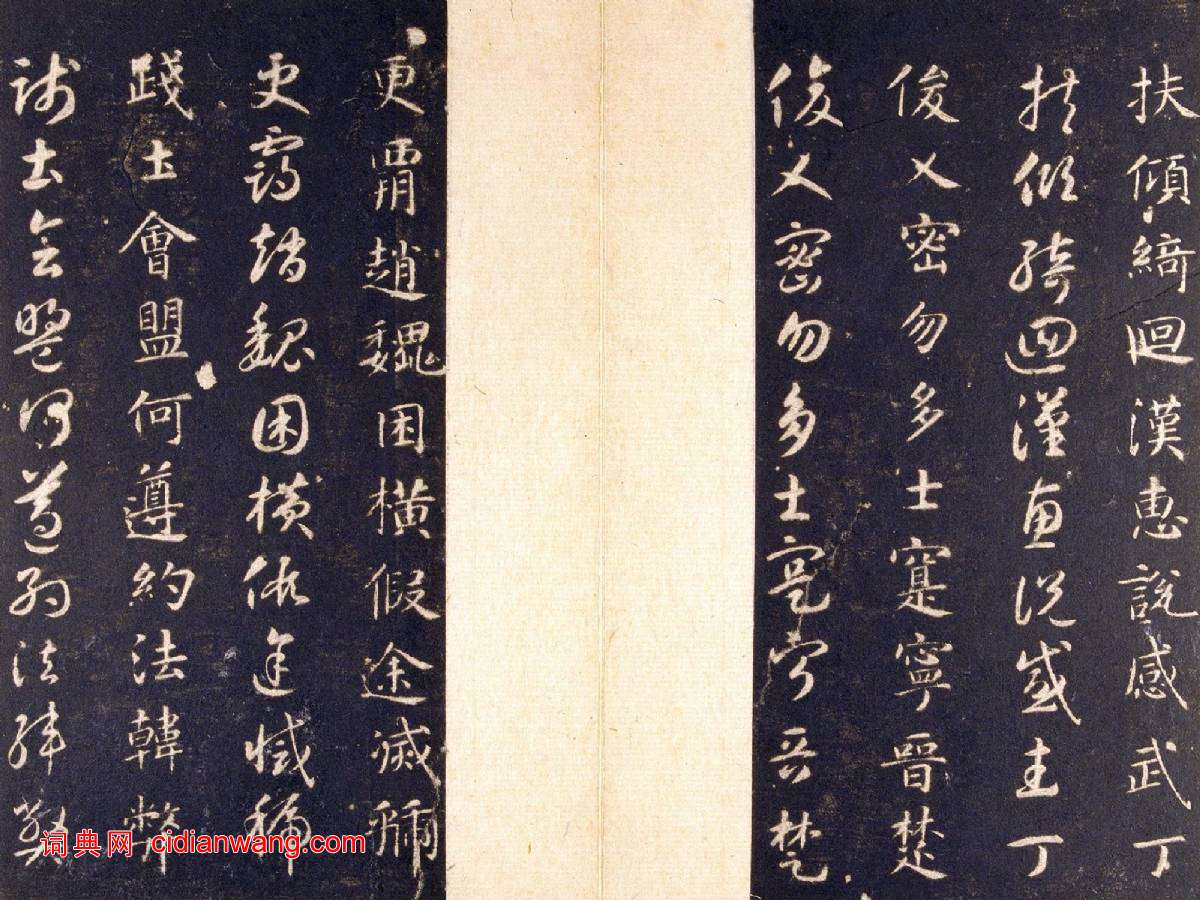 扶傾綺迴漢惠說感武丁
扶傾綺迴漢惠說感武丁
俊乂密勿多士寔寧晉楚
俊乂密勿多士寔寧晉楚
更覇趙魏困橫假途滅虢
更覇趙魏困橫假途滅虢
踐土會盟何遵約法韓弊
踐土會盟何遵約法韓弊
词典网 cidianwang.com